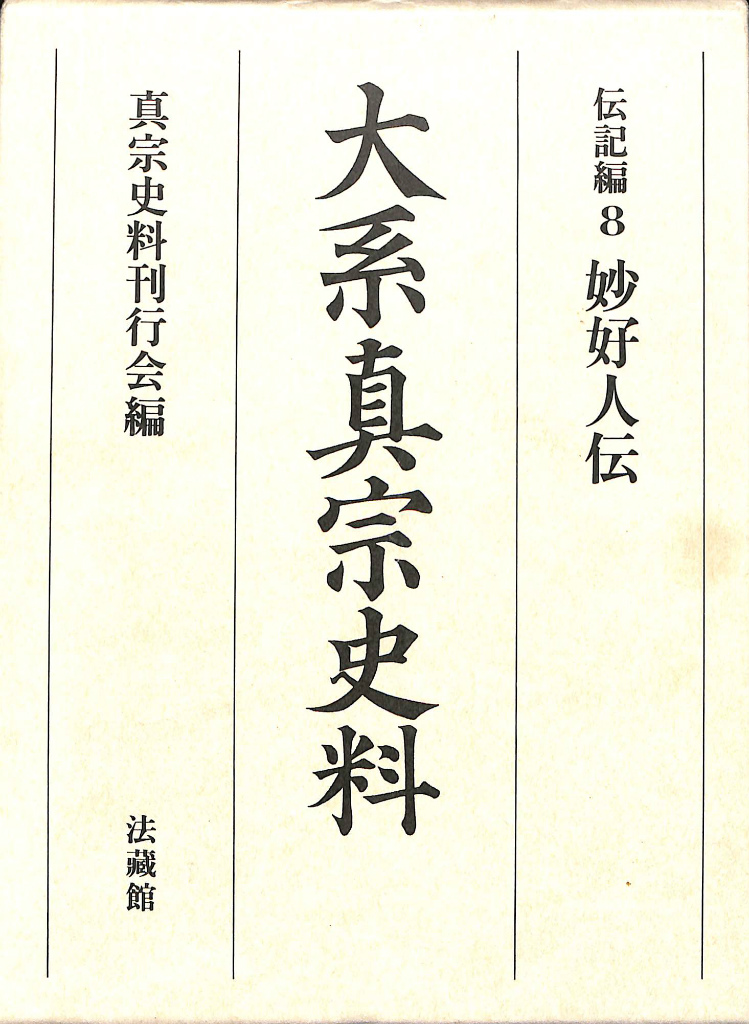 伝記編8 妙好人伝
大系真宗史料
真宗史料刊行会編
法藏館